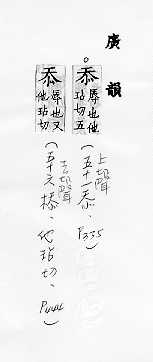 廣韻
忝 辱也他玷切五
上聲
(五十一忝、P335)
忝 辱也又他玷切
去聲
(五十六㮇、他玷切、P444)